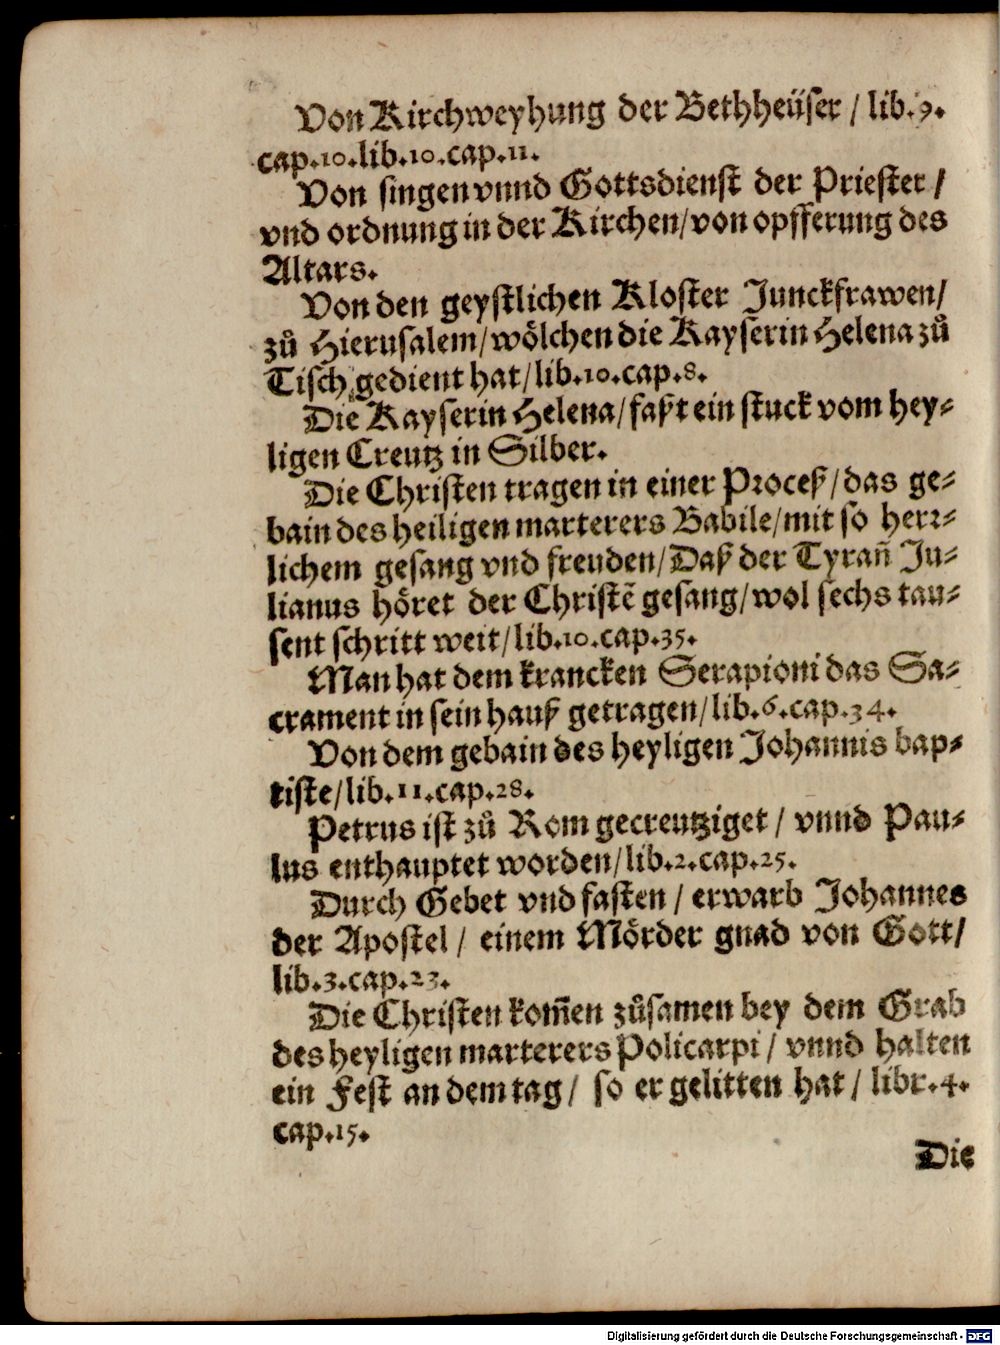 Von Kirchweyhung der Bethheüser / lib.9.
cap.10.lib.10.cap.11.
Von singen vnnd Gottsdienst der Priester /
vnd ordnung in der Kirchen/von opfferung des
Altars.
Von den geystlichen Kloster Junckfrawen/
zů Hierusalem/wölchen die Kayserin Helena zů
Tisch gedient hat/lib.10.cap.8.
Die Kayserin Helena/faßt ein stuck vom hey⸗
ligen Creutz in Silber.
Die Christen tragen in einer Proceß/das ge⸗
bain des heiligen marterers Babile/mit so herꝛ⸗
lichem gesang vnd freuden/Daß der Tyrañ Ju⸗
lianus höret der Christẽ gesang/wol sechs tau⸗
sent schritt weit/lib.10.cap.35.
Man hat dem krancken Serapioni das Sa⸗
crament in sein hauß getragen/lib.6.cap.34.
Von dem gebain des heyligen Johannis bap⸗
tiste/lib.11.cap.28.
Petrus ist zů Rom gecreutziget / vnnd Pau⸗
lus enthauptet worden/lib.2.cap.25.
Durch Gebet vnd fasten / erwarb Johannes
der Apostel / einem Mörder gnad von Gott/
lib.3.cap.23.
Die Christen kom̃en zůsamen bey dem Grab
des heyligen marterers Policarpi / vnnd halten
ein Fest an dem tag / so er gelitten hat / libr.4.
cap.15.
Die
Digitalisierung gefördert durch die Deutsche Forschungsgemeinschaft - DFG